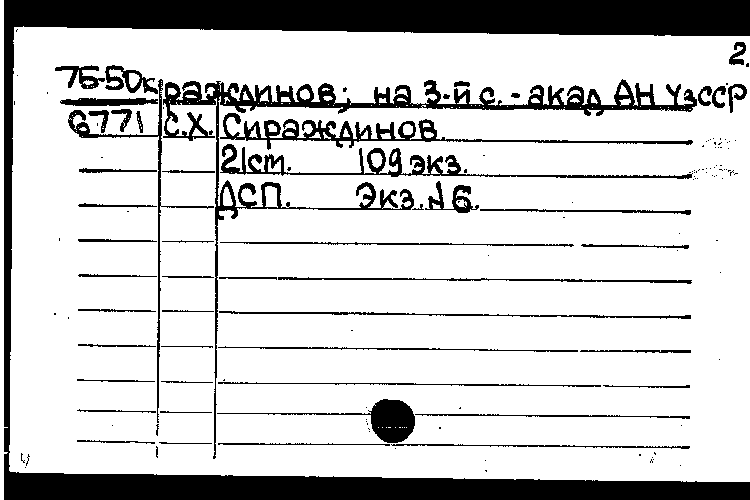 2.
75-50к раждинов; на 3-й с. - акад АН УзССР
6771 С.Х. Сираждинов.
21ст. 109 экз.
ДСП. Экз. № 6.